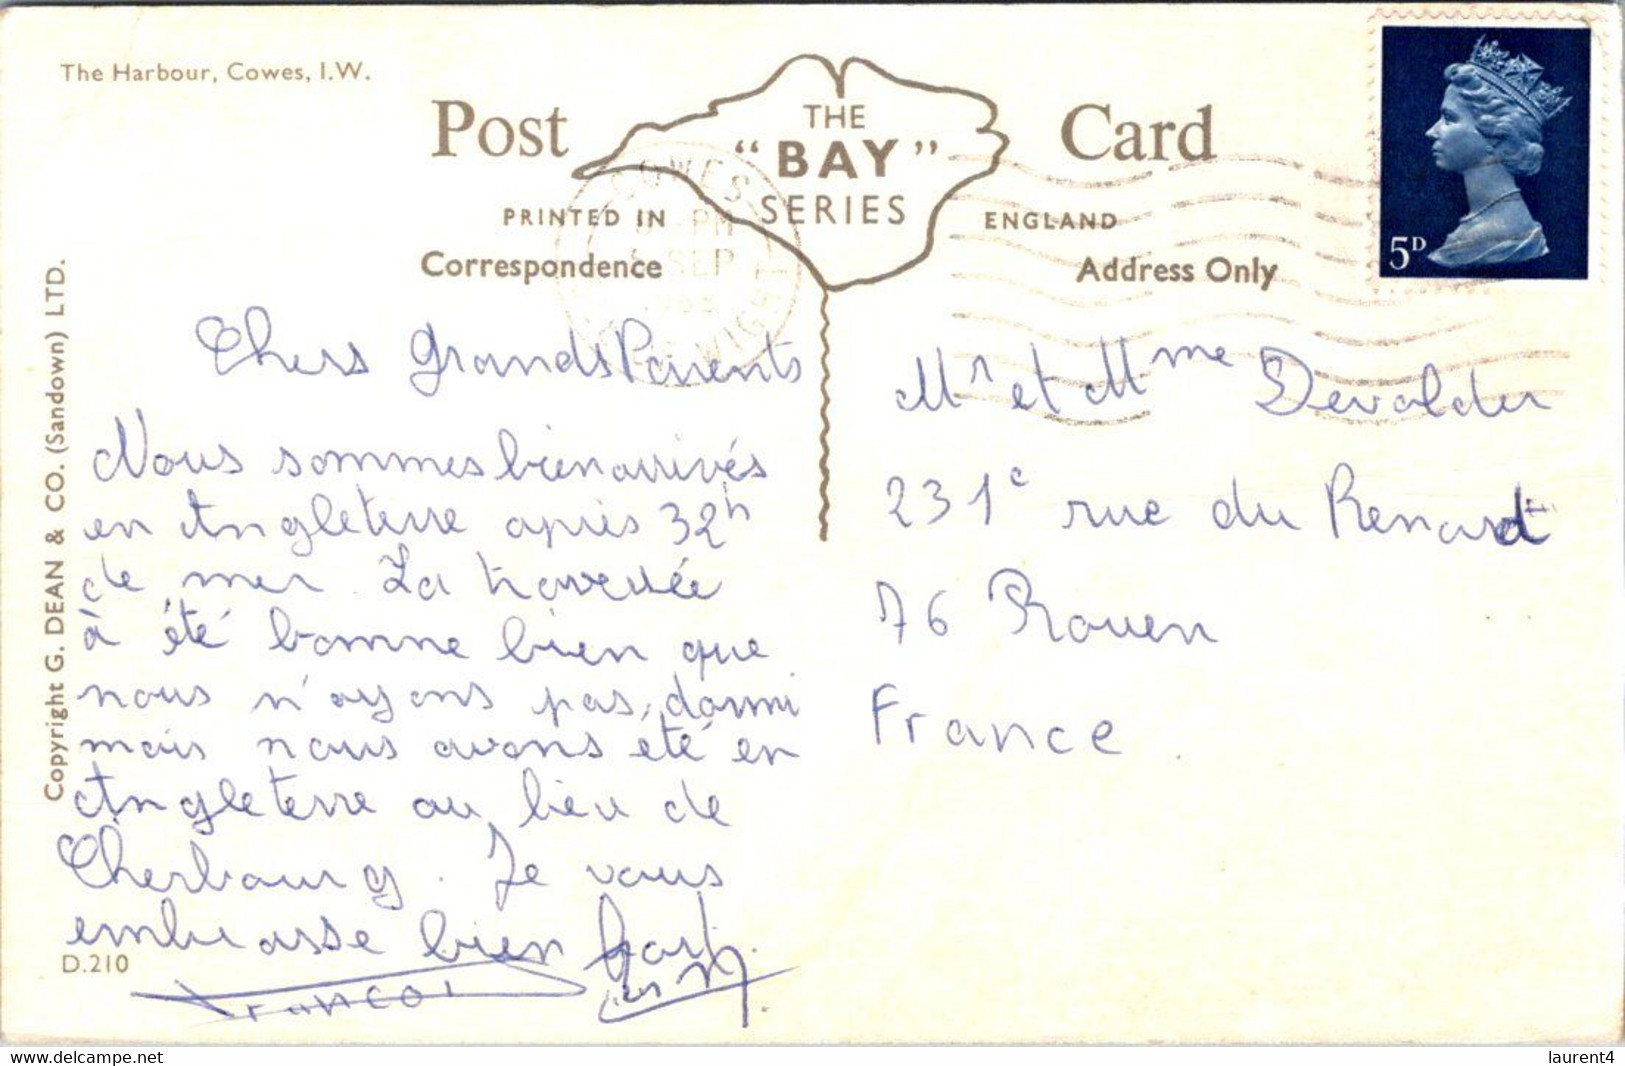 The Harbour, Cowes, I.W.
Post Card
THE
"BAY"
SERIES
PRINTED IN ENGLAND
Correspondence
Address Only
5D
COWES
PM
SEP
Copyright G. DEAN & CO. (Sandown) LTD.
Chers Grands Parents
Nous sommes bien arrivés
en Angleterre après 32h
de mer. La traversée
à été bonne bien que
nous n'ayons pas, dormi
mais nous avons été en
Angleterre au lieu de
Cherbourg. Je vous
embrasse bien fort.
D.210
Mr et Mme Devalder
231c rue du Renard
76 Rouen
France
laurent4